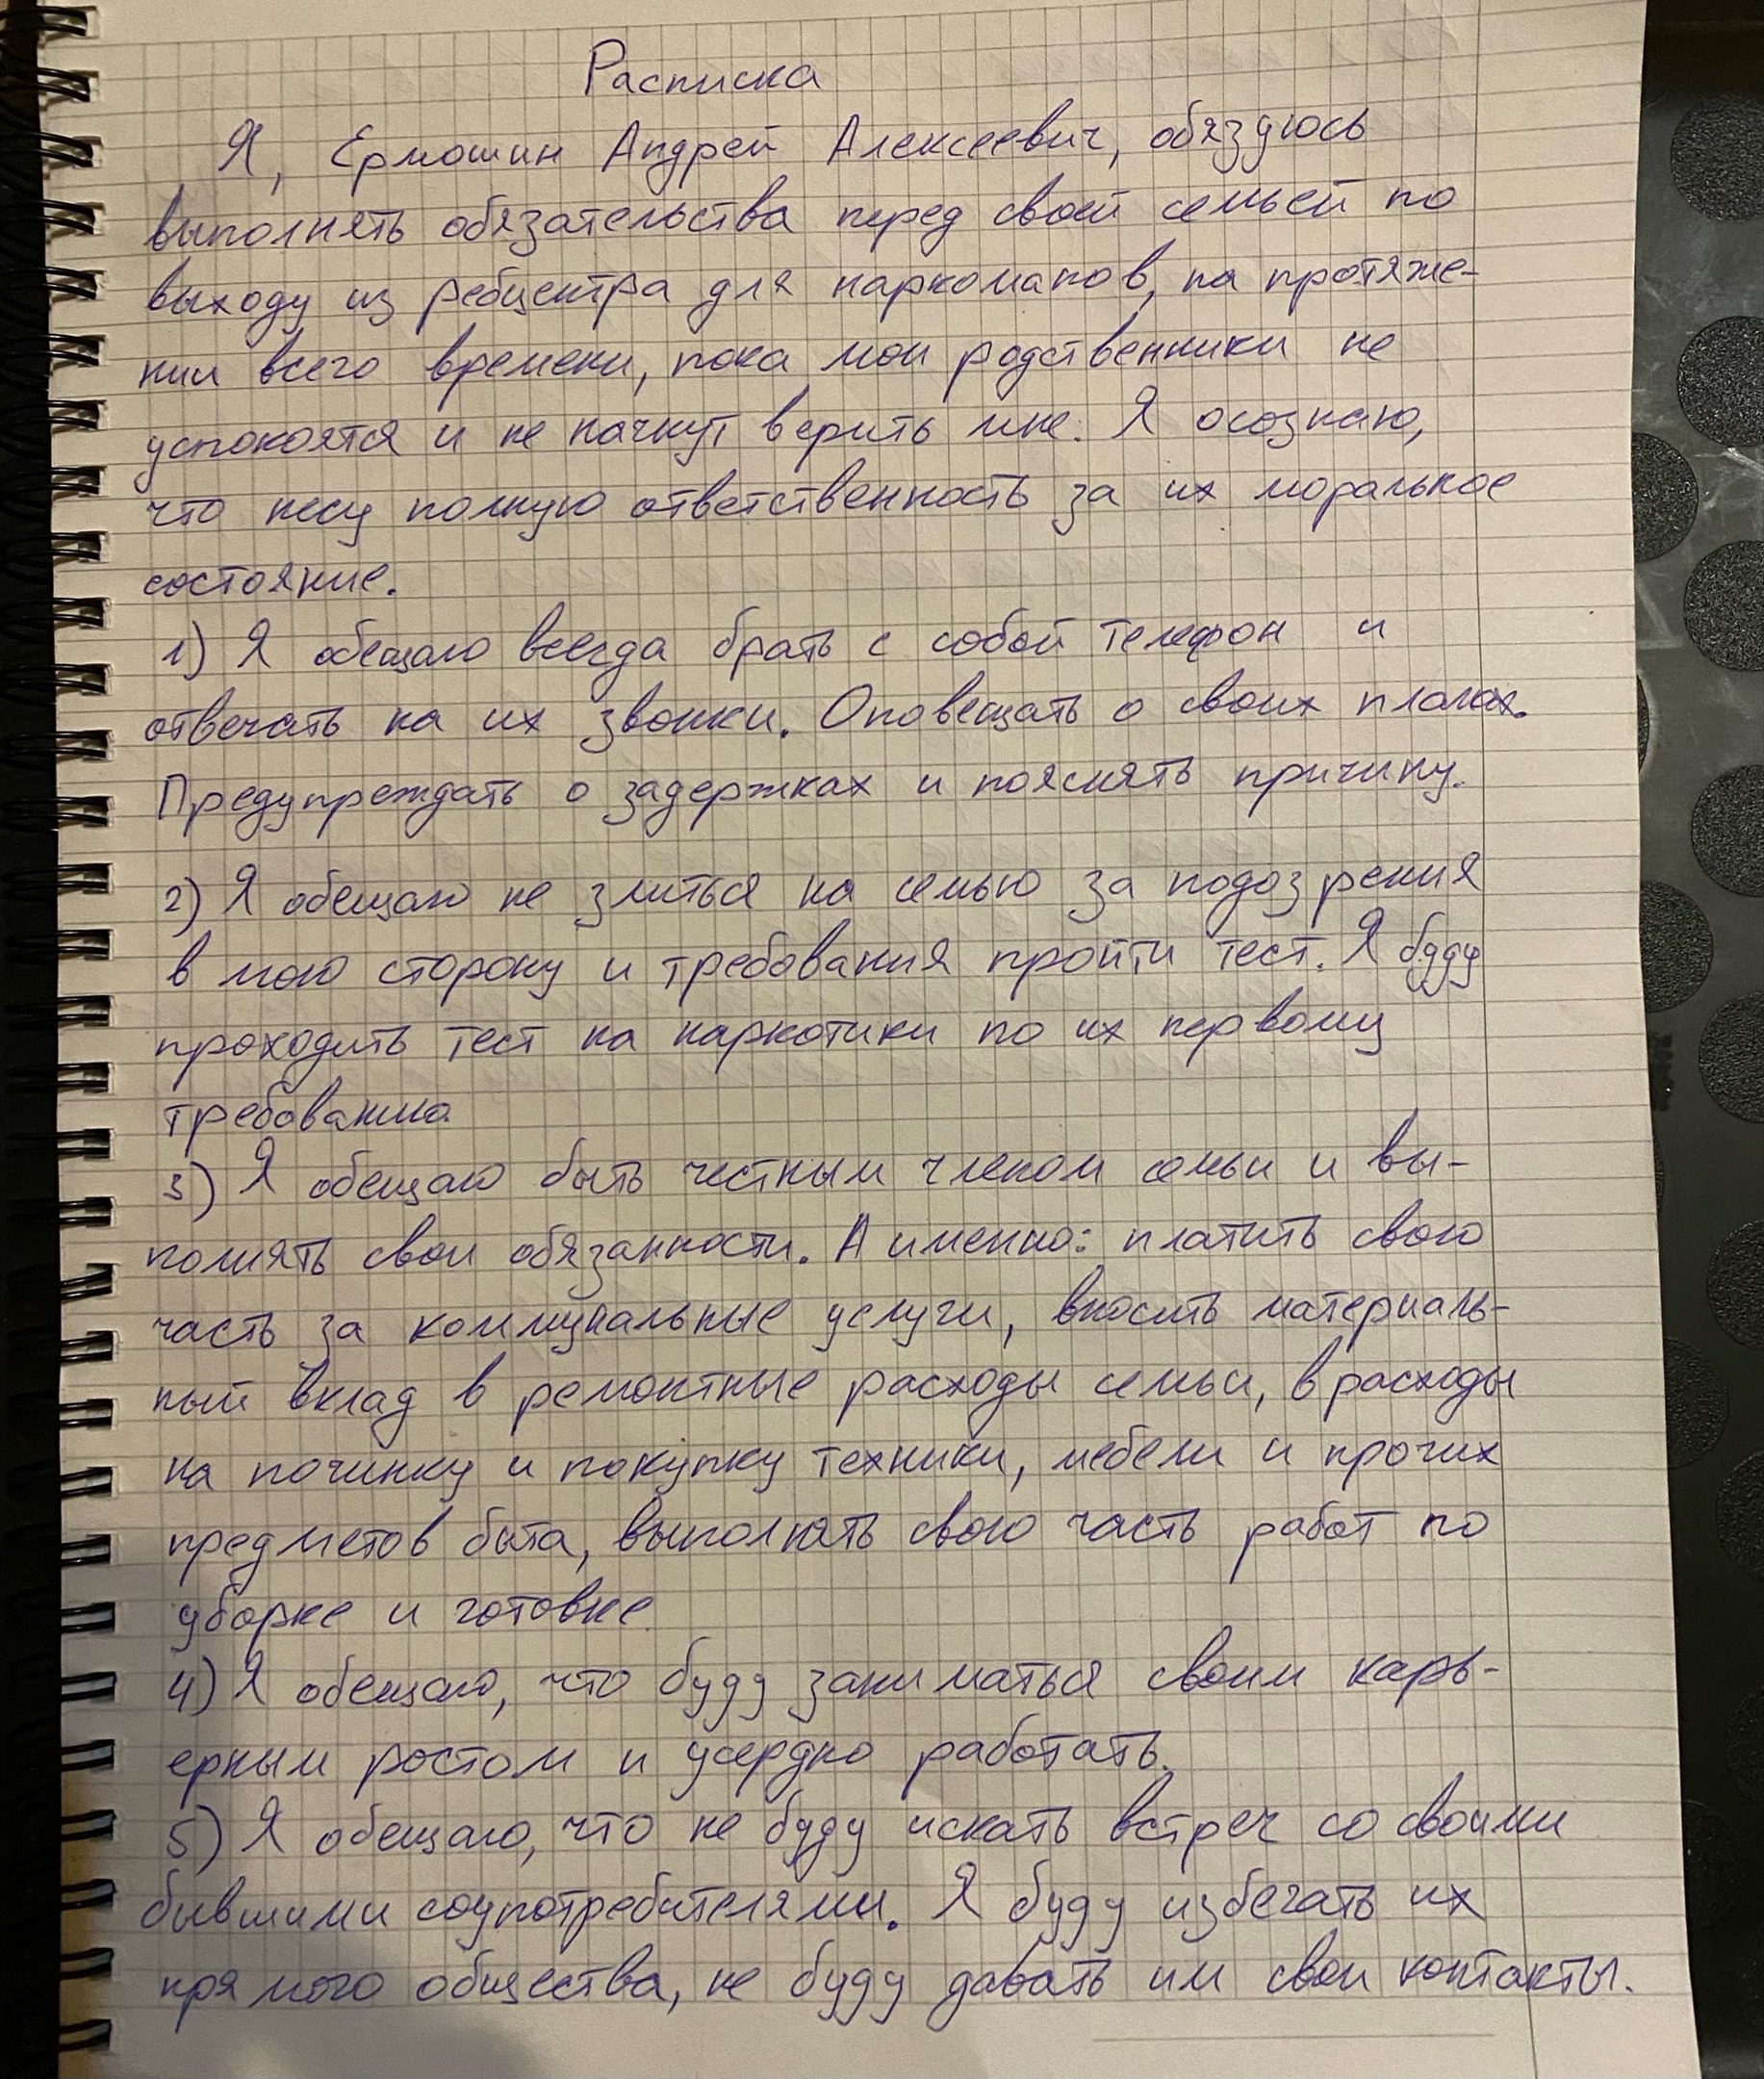 Расписка
Я, Ермошин Андрей Алексеевич, обязуюсь
выполнять обязательства перед своей семьей по
выходу из ребцентра для наркоманов, на протяже-
нии всего времени, пока мои родственники не
успокоятся и не начнут верить мне. Я осознаю,
что несу полную ответственность за их моральное
состояние.
1) Я обещаю всегда брать с собой телефон и
отвечать на их звонки. Оповещать о своих планах.
Предупреждать о задержках и пояснять причину.
2) Я обещаю не злиться на семью за подозрения
в мою сторону и требования пройти тест. Я буду
проходить тест на наркотики по их первому
требованию
3) Я обещаю быть честным членом семьи и вы-
полнять свои обязанности. А именно: платить свою
часть за коммунальные услуги, вносить материаль-
ный вклад в ремонтные расходы семьи, в расходы
на починку и покупку техники, мебели и прочих
предметов быта, выполнять свою часть работ по
уборке и готовке.
4) Я обещаю, что буду заниматься своим карь-
ерным ростом и усердно работать.
5) Я обещаю, что не буду искать встреч со своими
бывшими соупотребителями. Я буду избегать их
прямого общества, не буду давать им свои контакты.